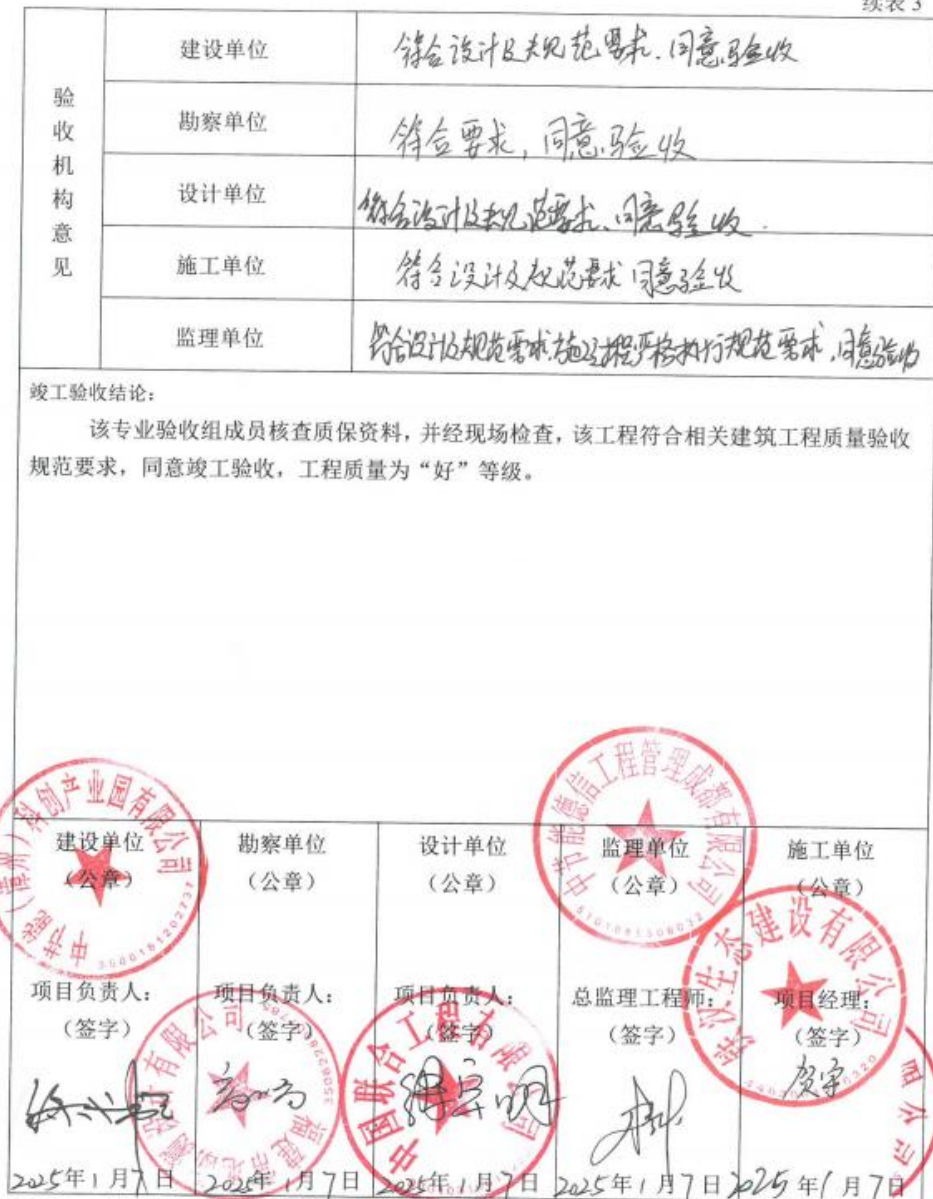 续表3
验收机构意见
建设单位 符合设计及规范要求.同意验收
勘察单位 符合要求,同意验收
设计单位 符合设计及规范要求、同意验收.
施工单位 符合设计及规范要求 同意验收
监理单位 符合设计及规范要求,施工过程严格执行规范要求,同意验收
竣工验收结论:
该专业验收组成员核查质保资料,并经现场检查,该工程符合相关建筑工程质量验收
规范要求,同意竣工验收,工程质量为“好”等级。
建设单位 勘察单位 设计单位 监理单位 施工单位
(公章) (公章) (公章) (公章) (公章)
项目负责人: 项目负责人: 项目负责人: 总监理工程师: 项目经理:
(签字) (签字) (签字) (签字) (签字)
2025年1月7日 2025年1月7日 2025年1月7日 2025年1月7日 2025年1月7日
科创产业园有限公司
中节能
中节能德信工程管理成都有限公司
生态建设有限公司
中国联合工程有限公司
福建
设计有限公司
限公司